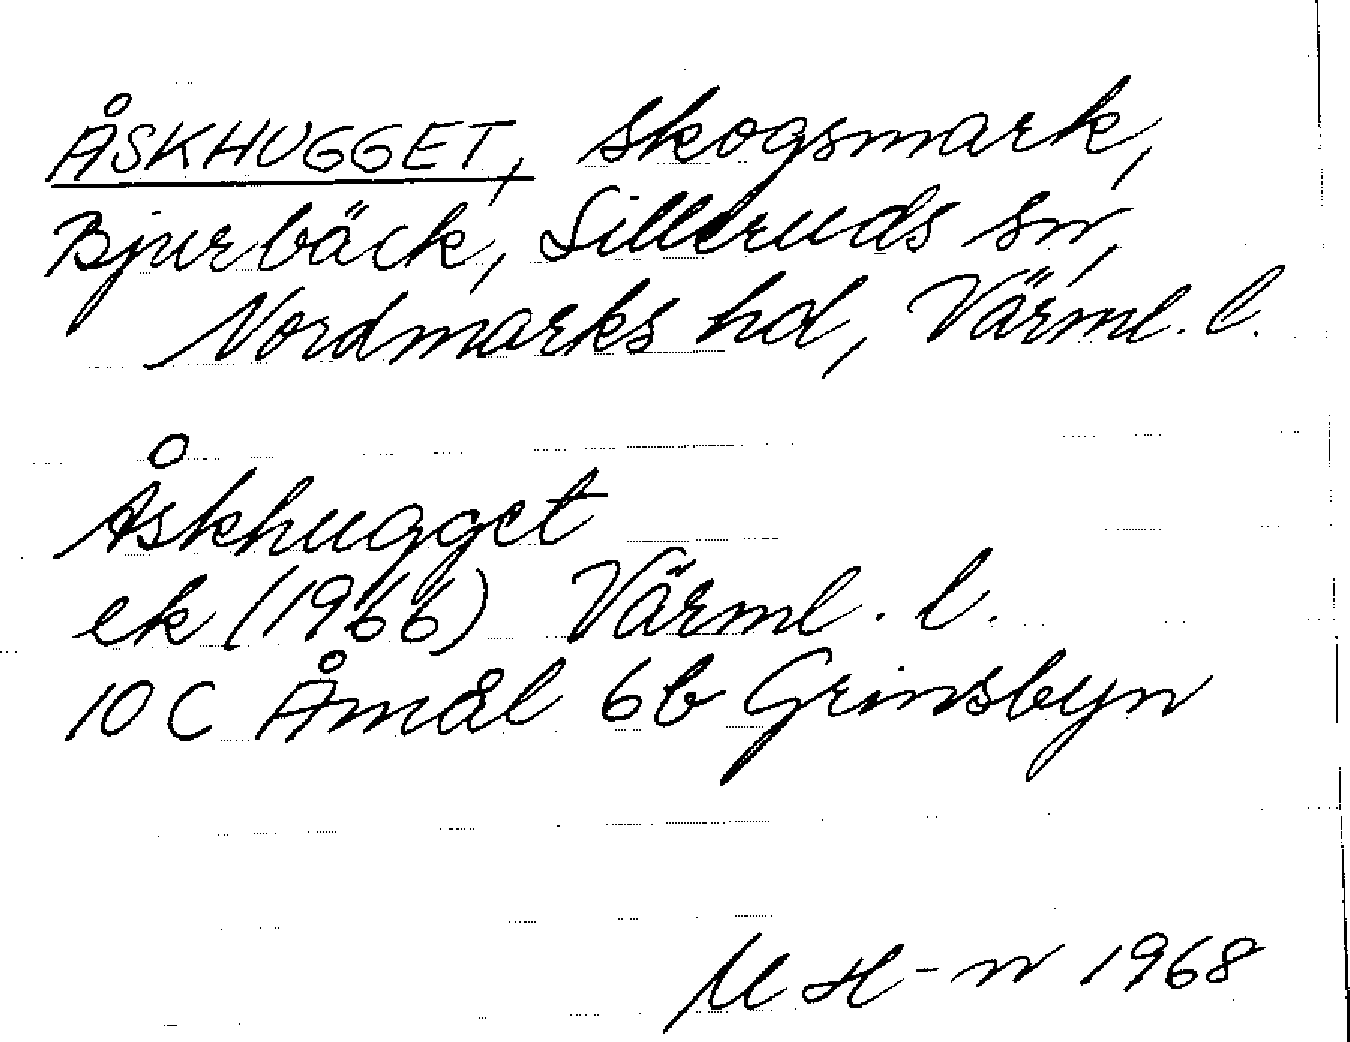 ÅSKHUGGET, skogsmark,
Bjurbäck, Silleruds sn,
Nordmarks hd, Värml. l.
Åskhugget
ek (1966) Värml. l.
10 C Åmål 6b Grinsbyn
M H-n 1968